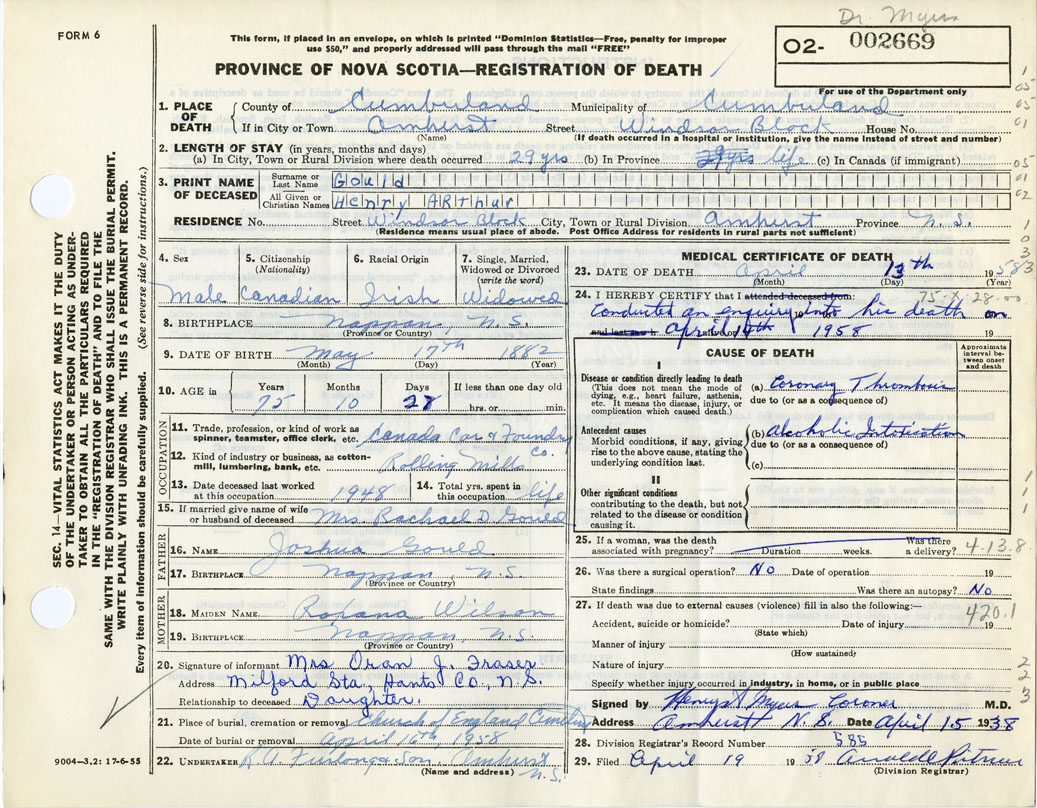 Dr. Myers
FORM 6
This form, if placed in an envelope, on which is printed "Dominion Statistics—Free, penalty for improper
use $50," and properly addressed will pass through the mail "FREE"
O2- 002669
PROVINCE OF NOVA SCOTIA—REGISTRATION OF DEATH
For use of the Department only
1. PLACE OF DEATH
County of Cumberland Municipality of Cumberland
If in City or Town Amherst Street Windsor Block House No.
(Name) (If death occurred in a hospital or institution, give the name instead of street and number)
2. LENGTH OF STAY (in years, months and days)
(a) In City, Town or Rural Division where death occurred 29 yrs (b) In Province 29 yrs life (c) In Canada (if immigrant)
3. PRINT NAME OF DECEASED
Surname or Last Name Gould
All Given or Christian Names Henry Arthur
RESIDENCE No. Street Windsor Block City, Town or Rural Division Amherst Province N.S.
(Residence means usual place of abode. Post Office Address for residents in rural parts not sufficient)
4. Sex
Male
5. Citizenship (Nationality)
Canadian
6. Racial Origin
Irish
7. Single, Married, Widowed or Divorced (write the word)
Widowed
8. BIRTHPLACE Nappan, N.S.
(Province or Country)
9. DATE OF BIRTH May 17th 1882
(Month) (Day) (Year)
10. AGE in Years Months Days If less than one day old
75 10 27 hrs. or min.
OCCUPATION
11. Trade, profession, or kind of work as
spinner, teamster, office clerk, etc. Canada Car & Foundry Co.
12. Kind of industry or business, as cotton-
mill, lumbering, bank, etc. Rolling Mills
13. Date deceased last worked
at this occupation 1948
14. Total yrs. spent in
this occupation life
15. If married give name of wife
or husband of deceased Mrs. Rachael D. Gould
FATHER
16. NAME Joshua Gould
17. BIRTHPLACE Nappan, N.S.
(Province or Country)
MOTHER
18. MAIDEN NAME Roxana Wilson
19. BIRTHPLACE Nappan, N.S.
(Province or Country)
20. Signature of informant Mrs Oran J. Fraser
Address Milford Sta., Hants Co., N.S.
Relationship to deceased Daughter.
21. Place of burial, cremation or removal Church of England Cemetery
Date of burial or removal April 16th, 1958
22. UNDERTAKER R.A. Furlong & Son, Amherst N.S.
(Name and address)
MEDICAL CERTIFICATE OF DEATH
23. DATE OF DEATH April 13th 1958
(Month) (Day) (Year)
24. I HEREBY CERTIFY that I attended deceased from:
75-X-28.00
Conducted an enquiry into his death on
April 14th 1958 19
CAUSE OF DEATH
Approximate interval between onset and death
I
Disease or condition directly leading to death
(This does not mean the mode of
dying, e.g., heart failure, asthenia,
etc. It means the disease, injury, or
complication which caused death.)
(a) Coronary Thrombosis
due to (or as a consequence of)
Antecedent causes
Morbid conditions, if any, giving
rise to the above cause, stating the
underlying condition last.
(b) Alcoholic Intoxication
due to (or as a consequence of)
(c)
II
Other significant conditions
contributing to the death, but not
related to the disease or condition
causing it.
25. If a woman, was the death
associated with pregnancy? Duration weeks. Was there
a delivery?
4.13.8
26. Was there a surgical operation? No Date of operation 19
State findings Was there an autopsy? No
27. If death was due to external causes (violence) fill in also the following:—
420.1
Accident, suicide or homicide? Date of injury 19
(State which)
Manner of injury
(How sustained)
Nature of injury
Specify whether injury occurred in industry, in home, or in public place
Signed by Henry S Myers Coroner M.D.
Address Amherst N.S Date April 15 1938
28. Division Registrar's Record Number 585
29. Filed April 19 19 58
(Division Registrar)
SEC. 14—VITAL STATISTICS ACT MAKES IT THE DUTY
OF THE UNDERTAKER OR PERSON ACTING AS UNDER-
TAKER TO OBTAIN ALL THE PARTICULARS REQUIRED
IN THE "REGISTRATION OF DEATH" AND TO FILE THE
SAME WITH THE DIVISION REGISTRAR WHO SHALL ISSUE THE BURIAL PERMIT.
WRITE PLAINLY WITH UNFADING INK. THIS IS A PERMANENT RECORD.
Every item of information should be carefully supplied. (See reverse side for instructions.)
9004—3.2: 17-6-55